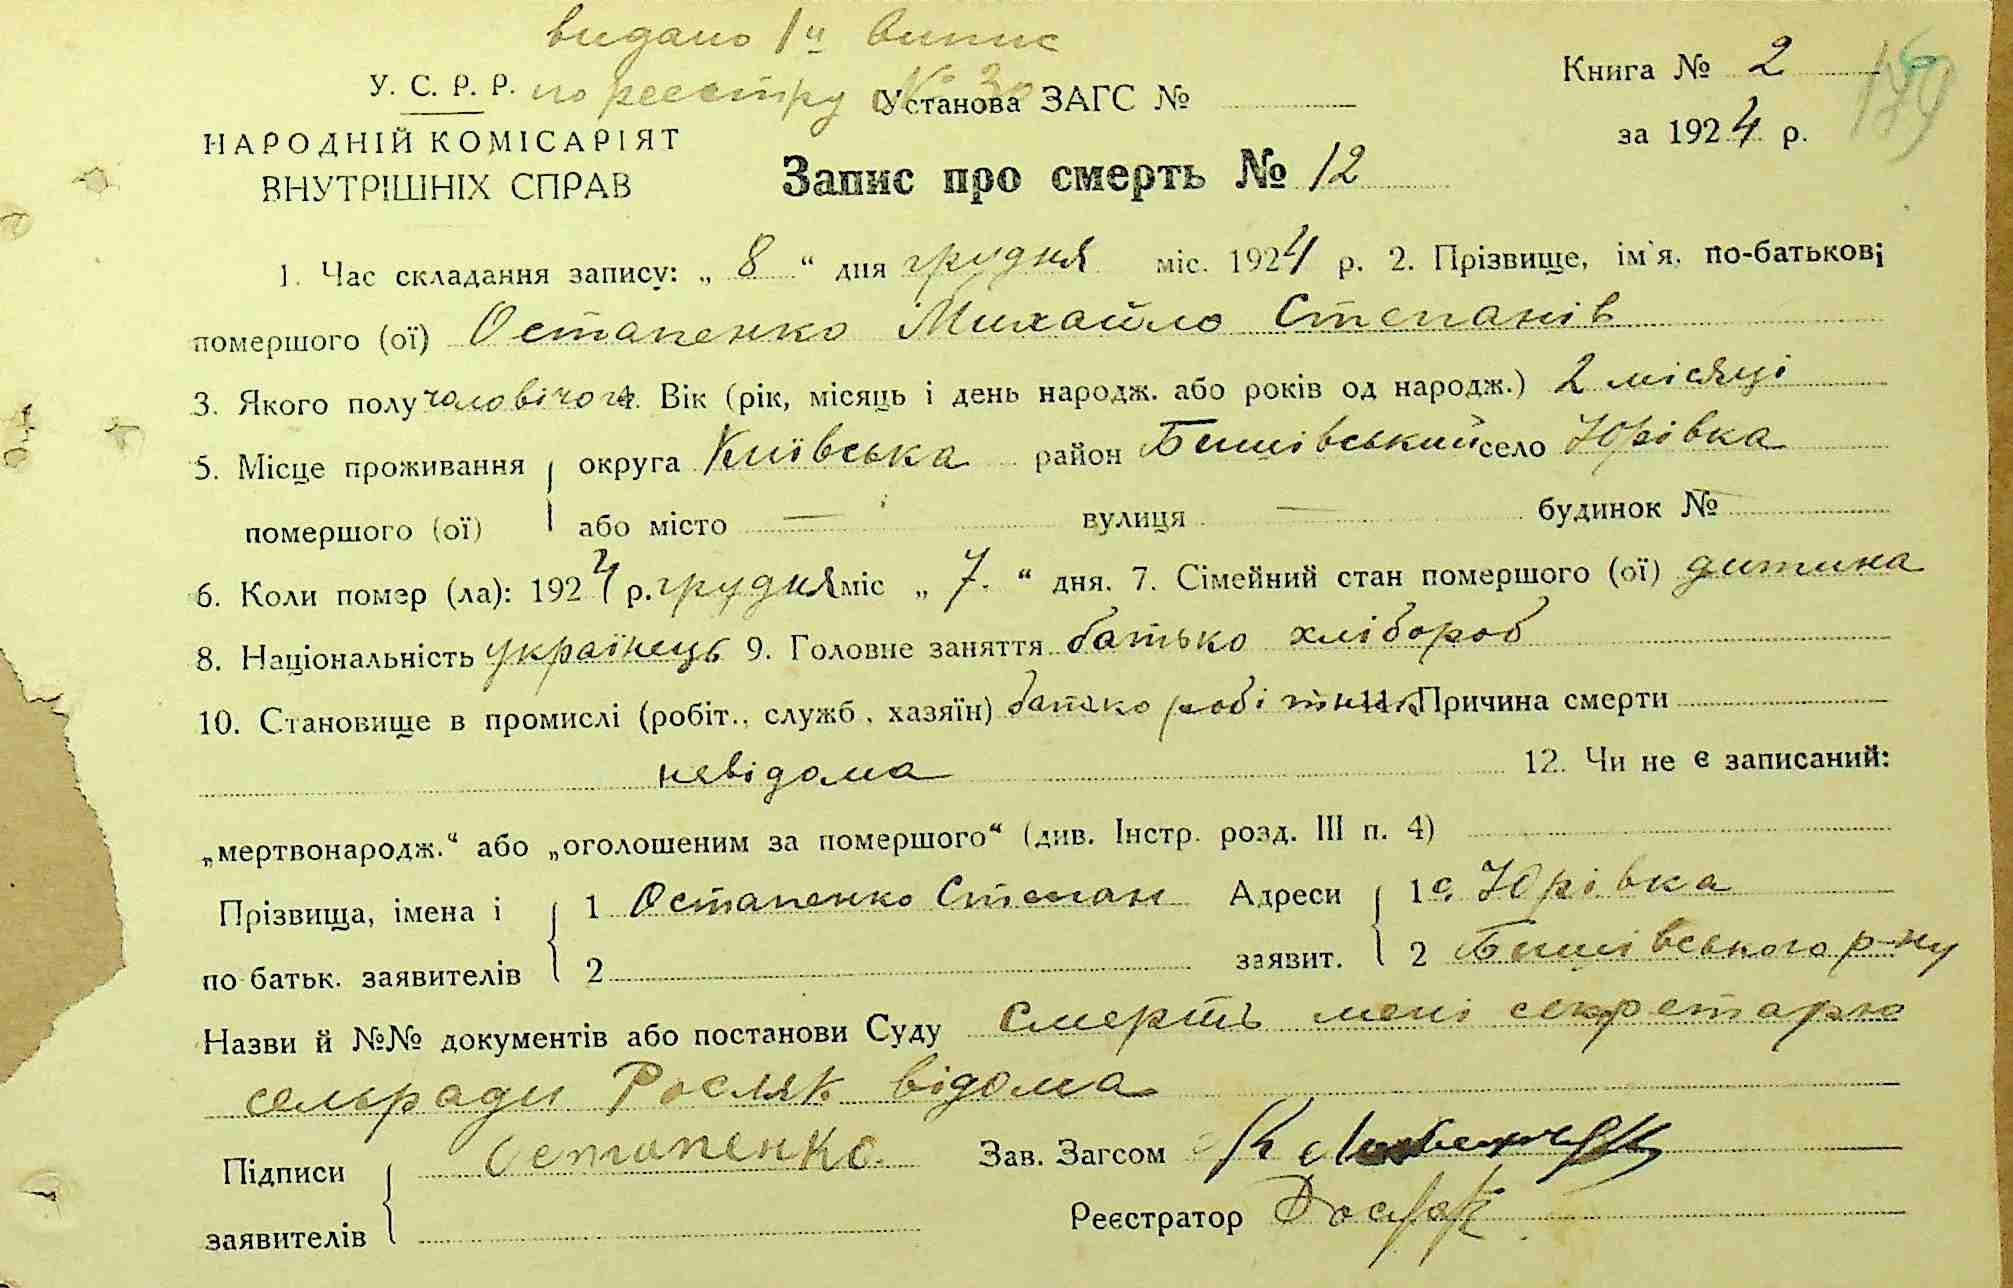 видано 1й випис
по реєстру № 30
У. С. Р. Р.
НАРОДНІЙ КОМІСАРІЯТ
ВНУТРІШНІХ СПРАВ
Установа ЗАГС №
Книга № 2
за 1924 р.
Запис про смерть № 12
1. Час складання запису: „ 8 “ дня грудня міс. 1924 р. 2. Прізвище, ім'я, по-батькові
помершого (ої) Остапенко Михайло Степанів
3. Якого полу чоловічого 4. Вік (рік, місяць і день народж. або років од народж.) 2 місяці
5. Місце проживання округа Київська район Бишівський село Юрівка
помершого (ої) або місто — вулиця — будинок №
6. Коли помер (ла): 1924 р. грудня міс „ 7. “ дня. 7. Сімейний стан помершого (ої) дитина
8. Національність українець 9. Головне заняття батько хлібороб
10. Становище в промислі (робіт., служб, хазяїн) батько робітник 11. Причина смерти
невідома 12. Чи не є записаний:
„мертвонародж.“ або „оголошеним за помершого“ (див. Інстр. розд. III п. 4)
Прізвища, імена і 1 Остапенко Степан Адреси 1 с. Юрівка
по батьк. заявителів 2 заявит. 2 Бишівського р-ну
Назви й №№ документів або постанови Суду Смерть мені секретарю
сельради Росляк відома
Підписи Остапенко Зав. Загсом
заявителів Реєстратор